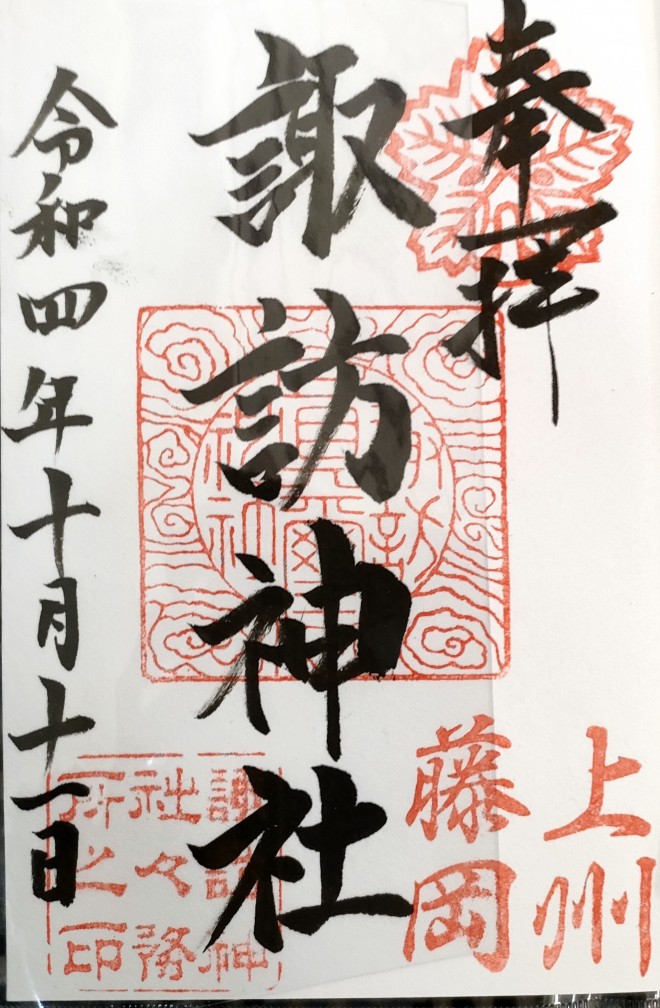 奉拝
上州
藤岡
諏訪神社
諏訪神
社々務
所之印
令和四年十月十一日